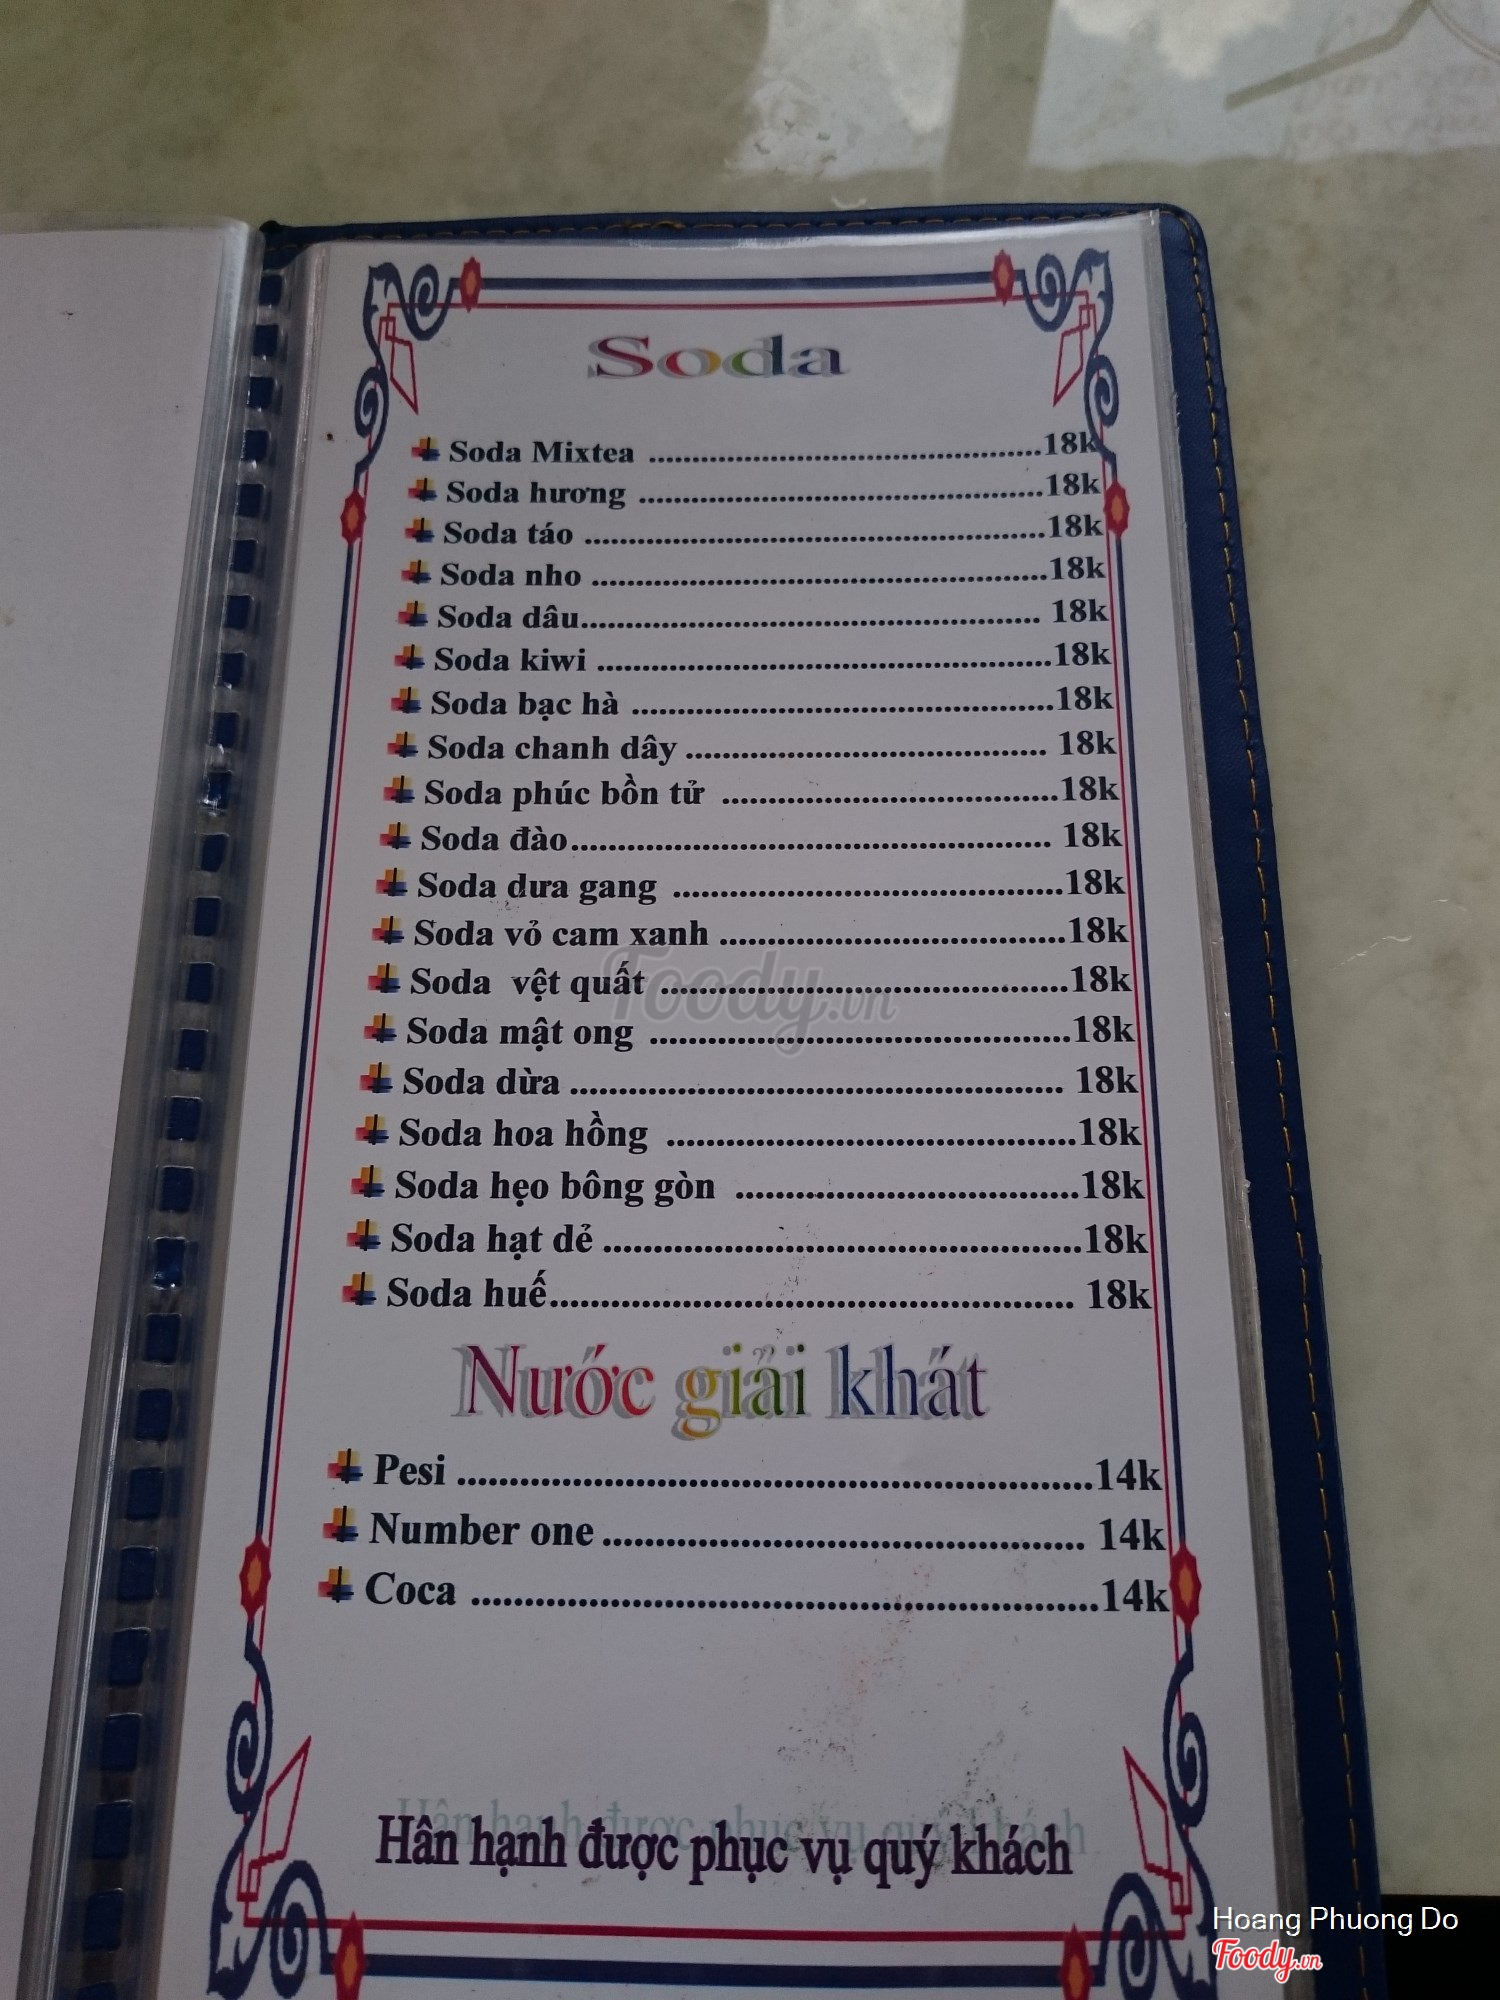 Soda
Soda Mixtea ..........18k
Soda hương ..........18k
Soda táo ..........18k
Soda nho ..........18k
Soda dâu.......... 18k
Soda kiwi ..........18k
Soda bạc hà ..........18k
Soda chanh dây .......... 18k
Soda phúc bồn tử ..........18k
Soda đào.......... 18k
Soda dưa gang ..........18k
Soda vỏ cam xanh ..........18k
Soda vệt quất ..........18k
Soda mật ong ..........18k
Soda dừa .......... 18k
Soda hoa hồng ..........18k
Soda hẹo bông gòn ..........18k
Soda hạt dẻ ..........18k
Soda huế.......... 18k
Nước giải khát
Pesi ..........14k
Number one .......... 14k
Coca ..........14k
Hân hạnh được phục vụ quý khách
Foody.vn
Hoang Phuong Do
Foody.vn